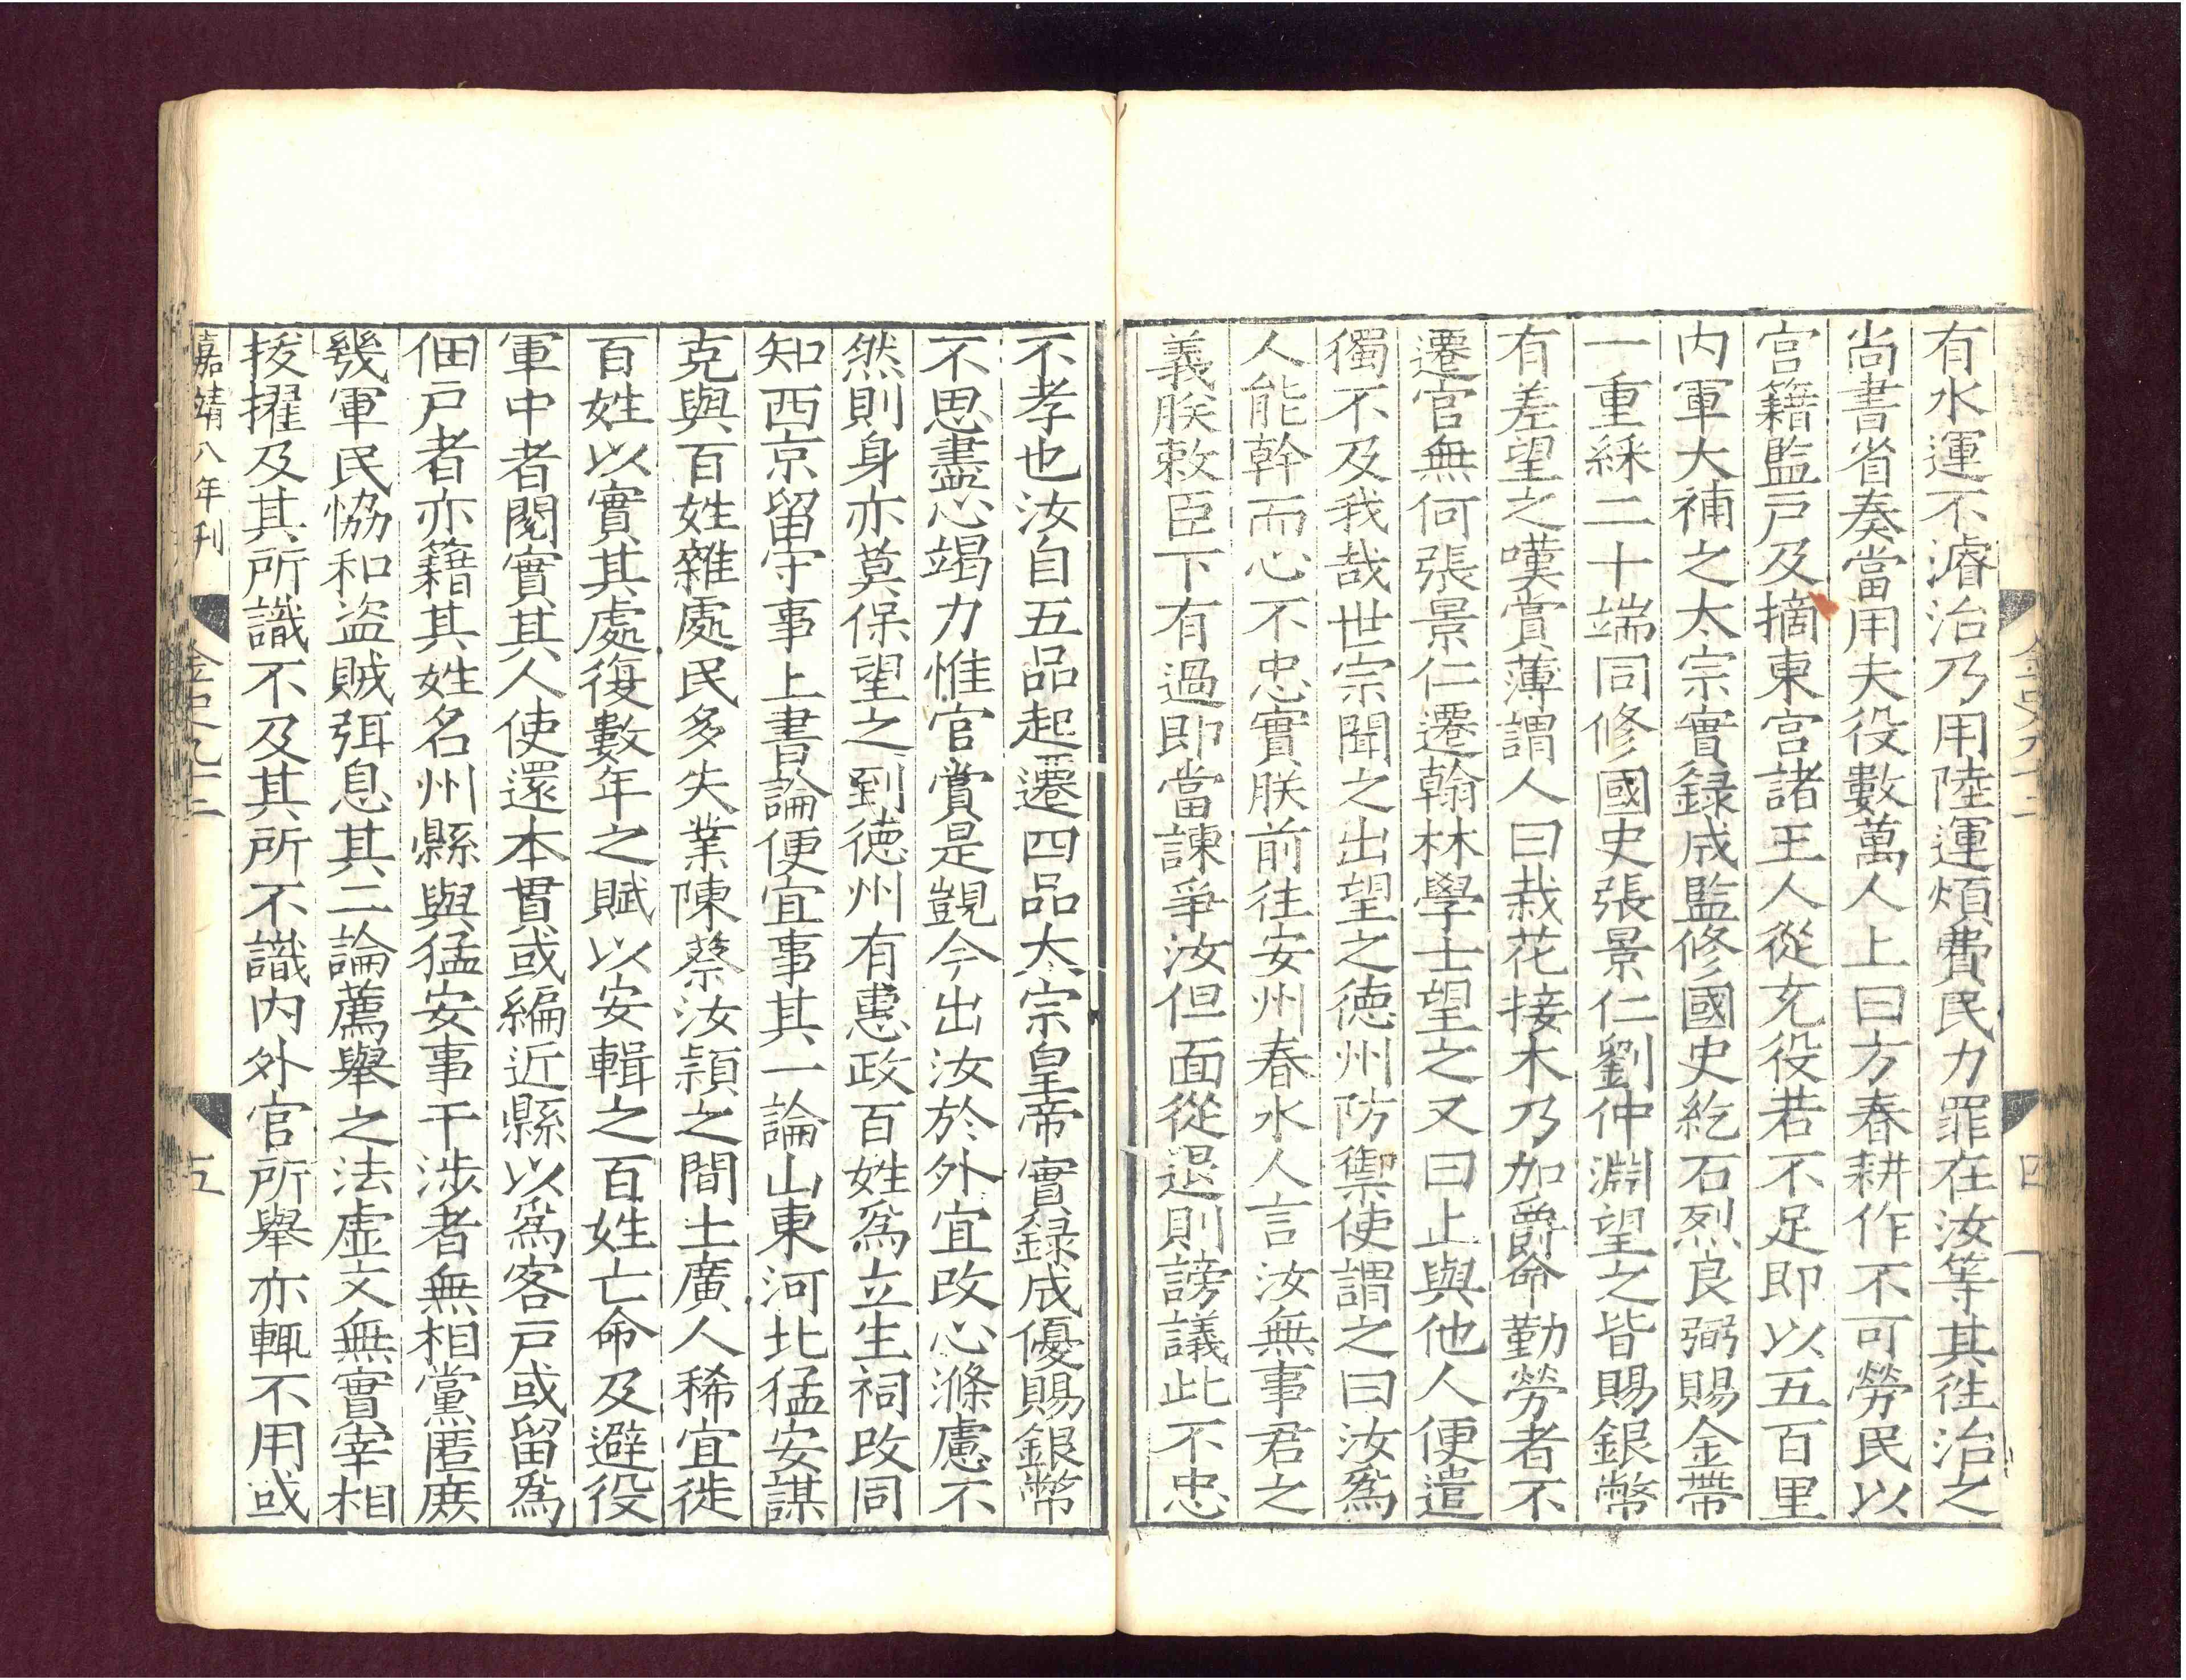 有水運不濬治乃用陸運煩費民力罪在汝等其徃治之
尚書省奏當用夫役數萬人上曰方春耕作不可勞民以
宮籍監戶及摘東宮諸王人從充役若不足即以五百里
内軍夫補之太宗實録成監修國史紇石烈良弼賜金帶
一重綵二十端同修國史張景仁劉仲淵望之皆賜銀幣
有差望之嘆賞薄謂人曰栽花接木乃加爵命勤勞者不
遷官無何張景仁遷翰林學士望之又曰止與他人便遣
獨不及我哉世宗聞之出望之德州防禦使謂之曰汝爲
人能幹而心不忠實朕前往安州春水人言汝無事君之
義朕敕臣下有過即當諫爭汝但面從退則謗議此不忠
不孝也汝自五品起遷四品太宗皇帝實録成優賜銀幣
不思盡心竭力惟官賞是覬今出汝於外宜改心滌慮不
然則身亦莫保望之到德州有惠政百姓爲立生祠改同
知西京留守事上書論便宜事其一論山東河北猛安謀
克與百姓雜處民多失業陳蔡汝潁之間土廣人稀宜徙
百姓以實其處復數年之賦以安輯之百姓亡命及避役
軍中者閱實其人使還本貫或編近縣以爲客戶或留爲
佃戶者亦籍其姓名州縣與猛安事干涉者無相黨匿庶
幾軍民恊和盜賊弭息其二論薦舉之法虛文無實宰相
拔擢及其所識不及其所不識内外官所舉亦輒不用或
嘉靖八年刊
金史九十二
五